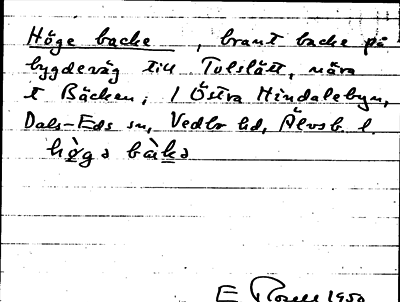 Höge backe, brant backe på
bygdeväg till Tolslätt, nära
t Bäcken, i Östra Hindalebyn,
Dals-Eds sn, Vedbo hd, Älvsb. l.
hò̱gə bàḵə
E 1950